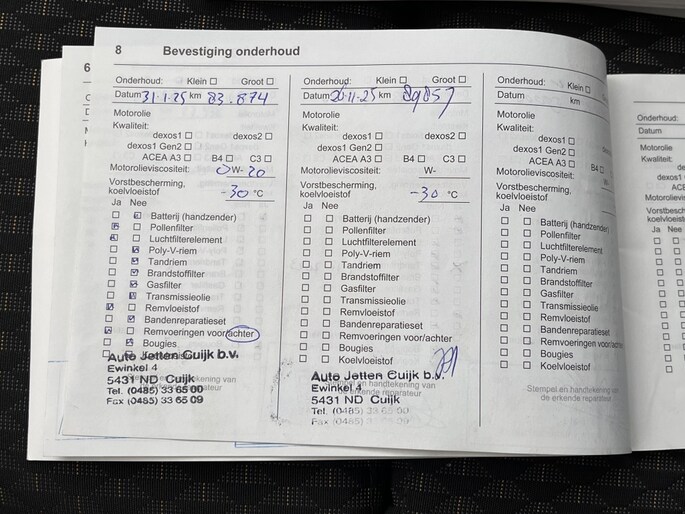 8 Bevestiging onderhoud
Onderhoud: Klein Groot
Datum 31-1-25 km 83.874
Motorolie
Kwaliteit:
dexos1 dexos2
dexos1 Gen2
ACEA A3 B4 C3
Motorolieviscositeit: 0W-20
Vorstbescherming,
koelvloeistof -30 °C
Ja Nee
Batterij (handzender)
Pollenfilter
Luchtfilterelement
Poly-V-riem
Tandriem
Brandstoffilter
Gasfilter
Transmissieolie
Remvloeistof
Bandenreparatieset
Remvoeringen voor/achter
Bougies
Auto Jetten Cuijk b.v.
Ewinkel 4
5431 ND Cuijk
Tel. (0485) 33 65 00
Fax (0485) 33 65 09
Onderhoud: Klein Groot
Datum 20-11-25 km 89857
Motorolie
Kwaliteit:
dexos1 dexos2
dexos1 Gen2
ACEA A3 B4 C3
Motorolieviscositeit: W-
Vorstbescherming,
koelvloeistof -30 °C
Ja Nee
Batterij (handzender)
Pollenfilter
Luchtfilterelement
Poly-V-riem
Tandriem
Brandstoffilter
Gasfilter
Transmissieolie
Remvloeistof
Bandenreparatieset
Remvoeringen voor/achter
Bougies
Koelvloeistof
Auto Jetten Cuijk b.v.
Ewinkel 4
5431 ND Cuijk
Tel. (0485) 33 65 00
Fax (0485) 33 65 09
Onderhoud: Klein
Datum km
Motorolie
Kwaliteit:
dexos1
dexos1 Gen2
ACEA A3 B4
Motorolieviscositeit: W-
Vorstbescherming,
koelvloeistof
Ja Nee
Batterij (handzender)
Pollenfilter
Luchtfilterelement
Poly-V-riem
Tandriem
Brandstoffilter
Gasfilter
Transmissieolie
Remvloeistof
Bandenreparatieset
Remvoeringen voor/achter
Bougies
Koelvloeistof
Stempel en handtekening van
de erkende reparateur
Onderhoud:
Datum
Motorolie
Kwaliteit:
dexos1
dexos1 Gen
ACEA
Motorolieviscos
koelvloeistof
Ja Nee
6